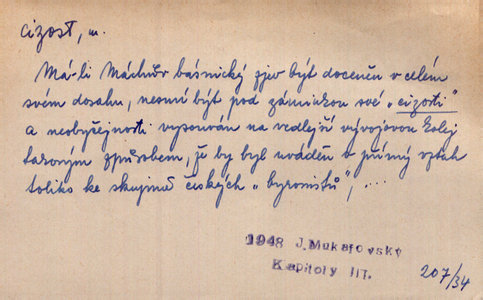 cizost, m.
Má-li Máchův básnický zjev být doceněn v celém
svém dosahu, nesmí být pod záminkou své „cizosti"
a neobyčejnosti vysouván na vedlejší vývojovou kolej
takovým způsobem, že by byl uváděn v přímý vztah
toliko ke skupině českých „byronistů", ....
1948 J. Mukařovský
Kapitoly III.
207/34